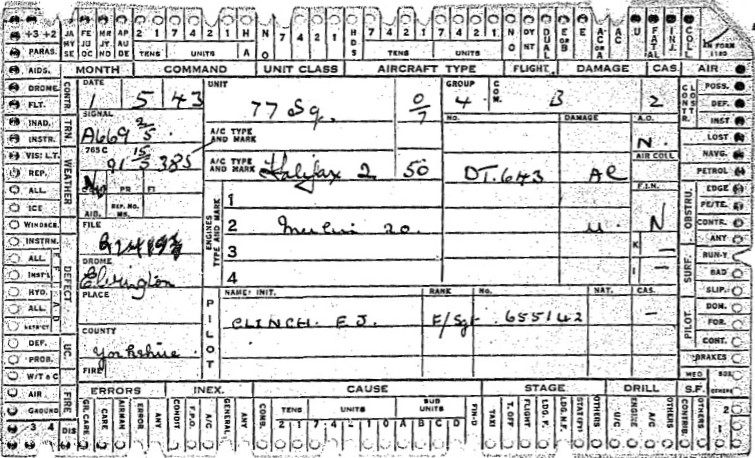 +3 +2 JA MY SE FE JU OC MR JY NO AP AU DE 2 1 7 4 2 1 H A N O 7 4 2 1 HDS 7 4 2 1 7 4 2 1 NO DY NT DUAL E or B E AC or A AC U FATAL INJ. COLL AN FORM 1180
TENS UNITS TENS UNITS
PARAS. MONTH COMMAND UNIT CLASS AIRCRAFT TYPE FLIGHT. DAMAGE CAS. AIR
AIDS. CONTR. DATE UNIT GROUP COM. CONSTR. CLOST POSS.
DROME. 1 5 43 77 Sq. 0/7 4. B 2 DEF.
FLT. SIGNAL NO. DAMAGE A.O. INST
INAD. TRN. A669 2/5. A/C TYPE AND MARK N. LOST
INSTR. 765C AIR COLL NAVG.
VIS: L.T. WEATHER 91 15/5 385 A/C TYPE AND MARK Halifax 2 50 DT.643 AC PETROL
REP. No PR F.I.N. EDGE
ALL AID. REP. NO. ENGINES TYPE AND MARK 1 OBSTRU. PE/TE.
ICE FILE 2 Merlin 20. U. N CONTR.
WINDSCR. 3 K — ANY
INSTRM. DROME 4 I — SURF. RUN-Y
ALL DEFECT Elvington BAD
INST'L PLACE PILOT NAME: INIT. RANK No. NAT. CAS. SLIP.
HYD. CLINCH. E.J. F/Sgt. 655142 — PILOT DOM.
ALL COUNTY FOR.
DEF. UC. Yorkshire. CONT.
PROB. FIRE BRAKES
W/T & C MED
AIR FIRE ERRORS INEX. CAUSE STAGE DRILL S.F.
GROUND GIL.CARE. CARE AIRMAN ERROR ANY CONDIT F.P.O. A/C GENERAL ANY COMB. TENS UNITS SUB UNITS PIN-O TAXI T. OFF FLIGHT LDG. F. LDG. N.F. OTHERS U/C ENGINE A/C OTHERS CONTRIB. OTHERS 2
3 4 DIS 2 1 7 4 2 1 0 A B C D 1